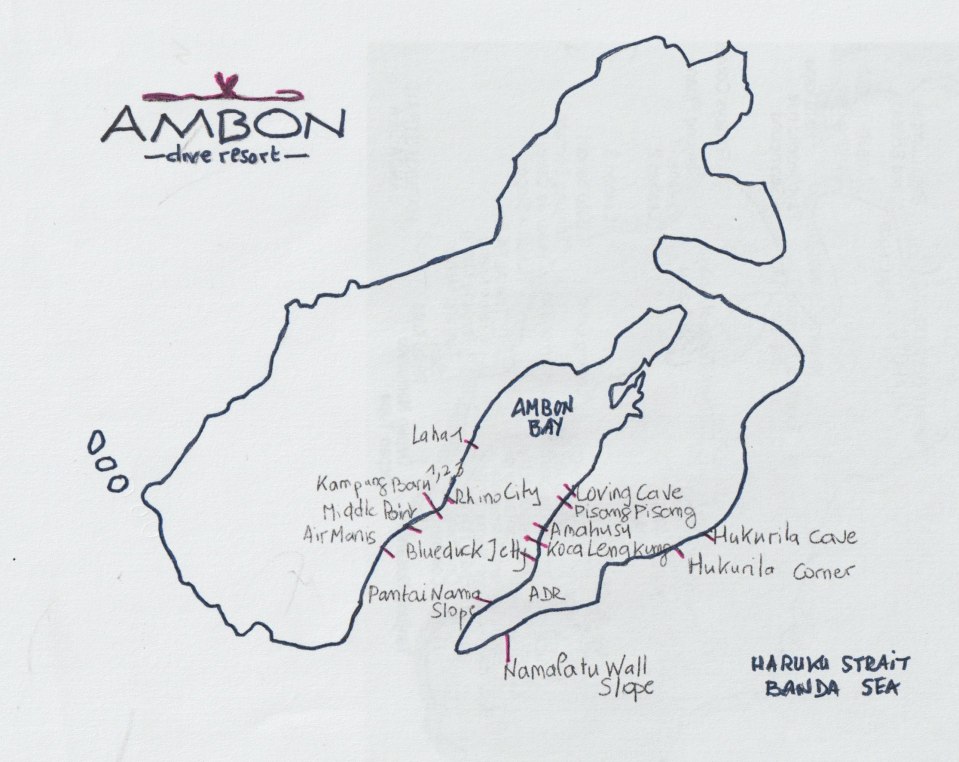 AMBON
-dive resort-
AMBON
BAY
Laha 1
Kampung Baru 1,2,3
Rhino City
Middle Point
Air Manis
Loving Cave
Pisong Pisong
Amahusu
Blueduck Jetty
Koca Lengkung
Hukurila Cave
Hukurila Corner
Pantai Nama
Slope
ADR
Namalatu Wall
Slope
HARUKU STRAIT
BANDA SEA